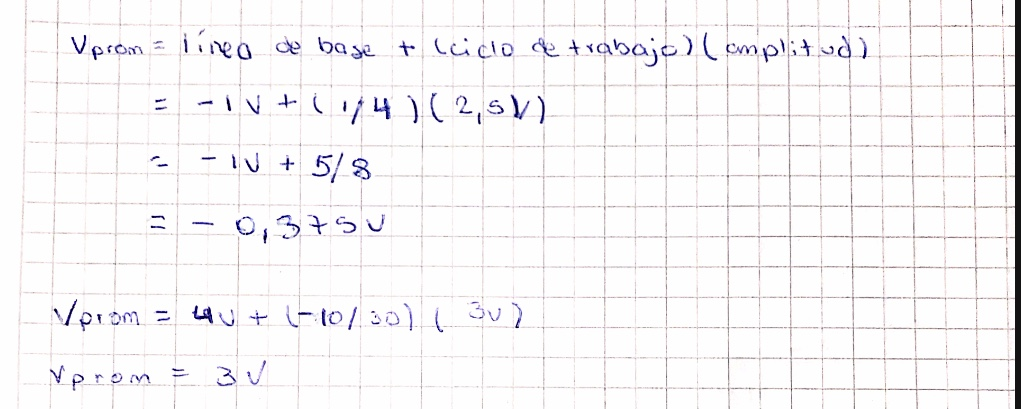 Vprom = línea de base + (ciclo de trabajo)(amplitud)
= -1V + (1/4)(2,5V)
= -1V + 5/8
= - 0,375V
Vprom = 4V + (-10/30)(3V)
Vprom = 3V